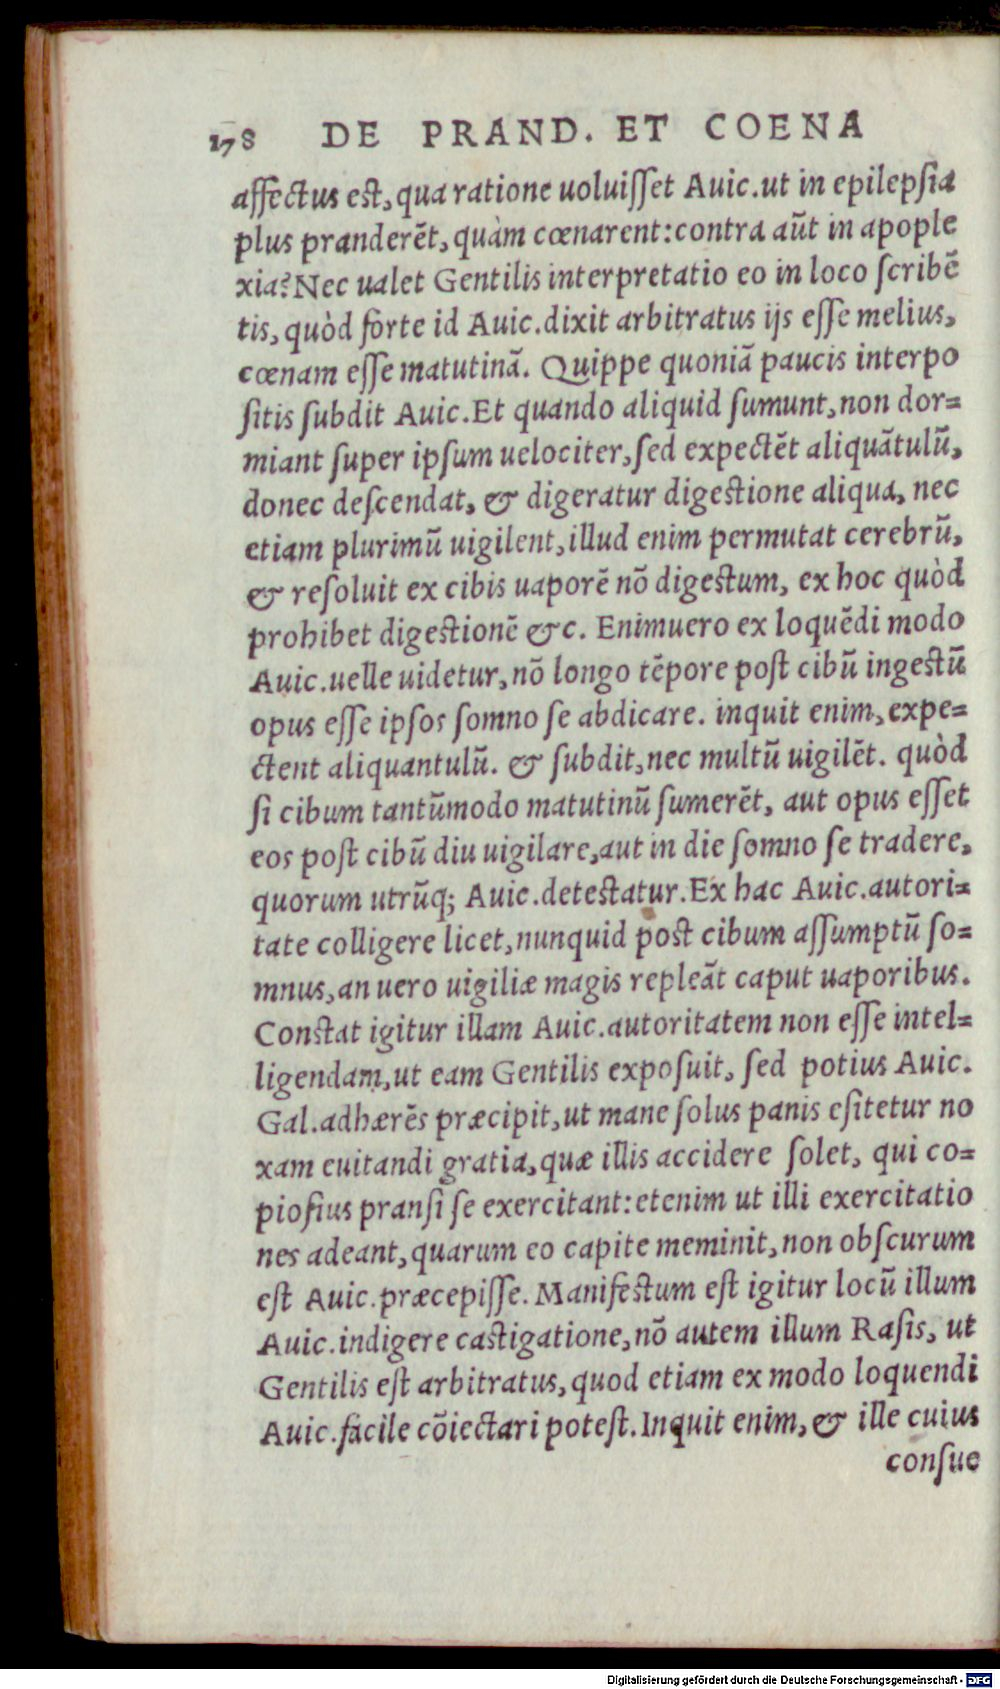 178 DE PRAND. ET COENA
affectus est, qua ratione uoluisset Auic.ut in epilepsia
plus pranderēt, quàm cœnarent: contra aūt in apople
xia? Nec ualet Gentilis interpretatio eo in loco scribē
tis, quòd forte id Auic.dixit arbitratus ijs esse melius,
cœnam esse matutinā. Quippe quoniā paucis interpo
sitis subdit Auic.Et quando aliquid sumunt, non dor=
miant super ipsum uelociter, sed expectēt aliquātulū,
donec descendat, & digeratur digestione aliqua, nec
etiam plurimū uigilent, illud enim permutat cerebrū,
& resoluit ex cibis uaporē nō digestum, ex hoc quòd
prohibet digestionē &c. Enimuero ex loquēdi modo
Auic.uelle uidetur, nō longo tēpore post cibū ingestū
opus esse ipsos somno se abdicare. inquit enim, expe=
ctent aliquantulū. & subdit, nec multū uigilēt. quòd
si cibum tantūmodo matutinū sumerēt, aut opus esset
eos post cibū diu uigilare, aut in die somno se tradere,
quorum utrūq; Auic.detestatur. Ex hac Auic.autori=
tate colligere licet, nunquid post cibum assumptū so=
mnus, an uero uigiliæ magis repleāt caput uaporibus.
Constat igitur illam Auic.autoritatem non esse intel=
ligendam, ut eam Gentilis exposuit, sed potius Auic.
Gal.adhærēs præcipit, ut mane solus panis esitetur no
xam euitandi gratia, quæ illis accidere solet, qui co=
piosius pransi se exercitant: etenim ut illi exercitatio
nes adeant, quarum eo capite meminit, non obscurum
est Auic.præcepisse. Manifestum est igitur locū illum
Auic.indigere castigatione, nō autem illum Rasis, ut
Gentilis est arbitratus, quod etiam ex modo loquendi
Auic.facile cōiectari potest. Inquit enim, & ille cuius
consue
Digitalisierung gefördert durch die Deutsche Forschungsgemeinschaft - DFG